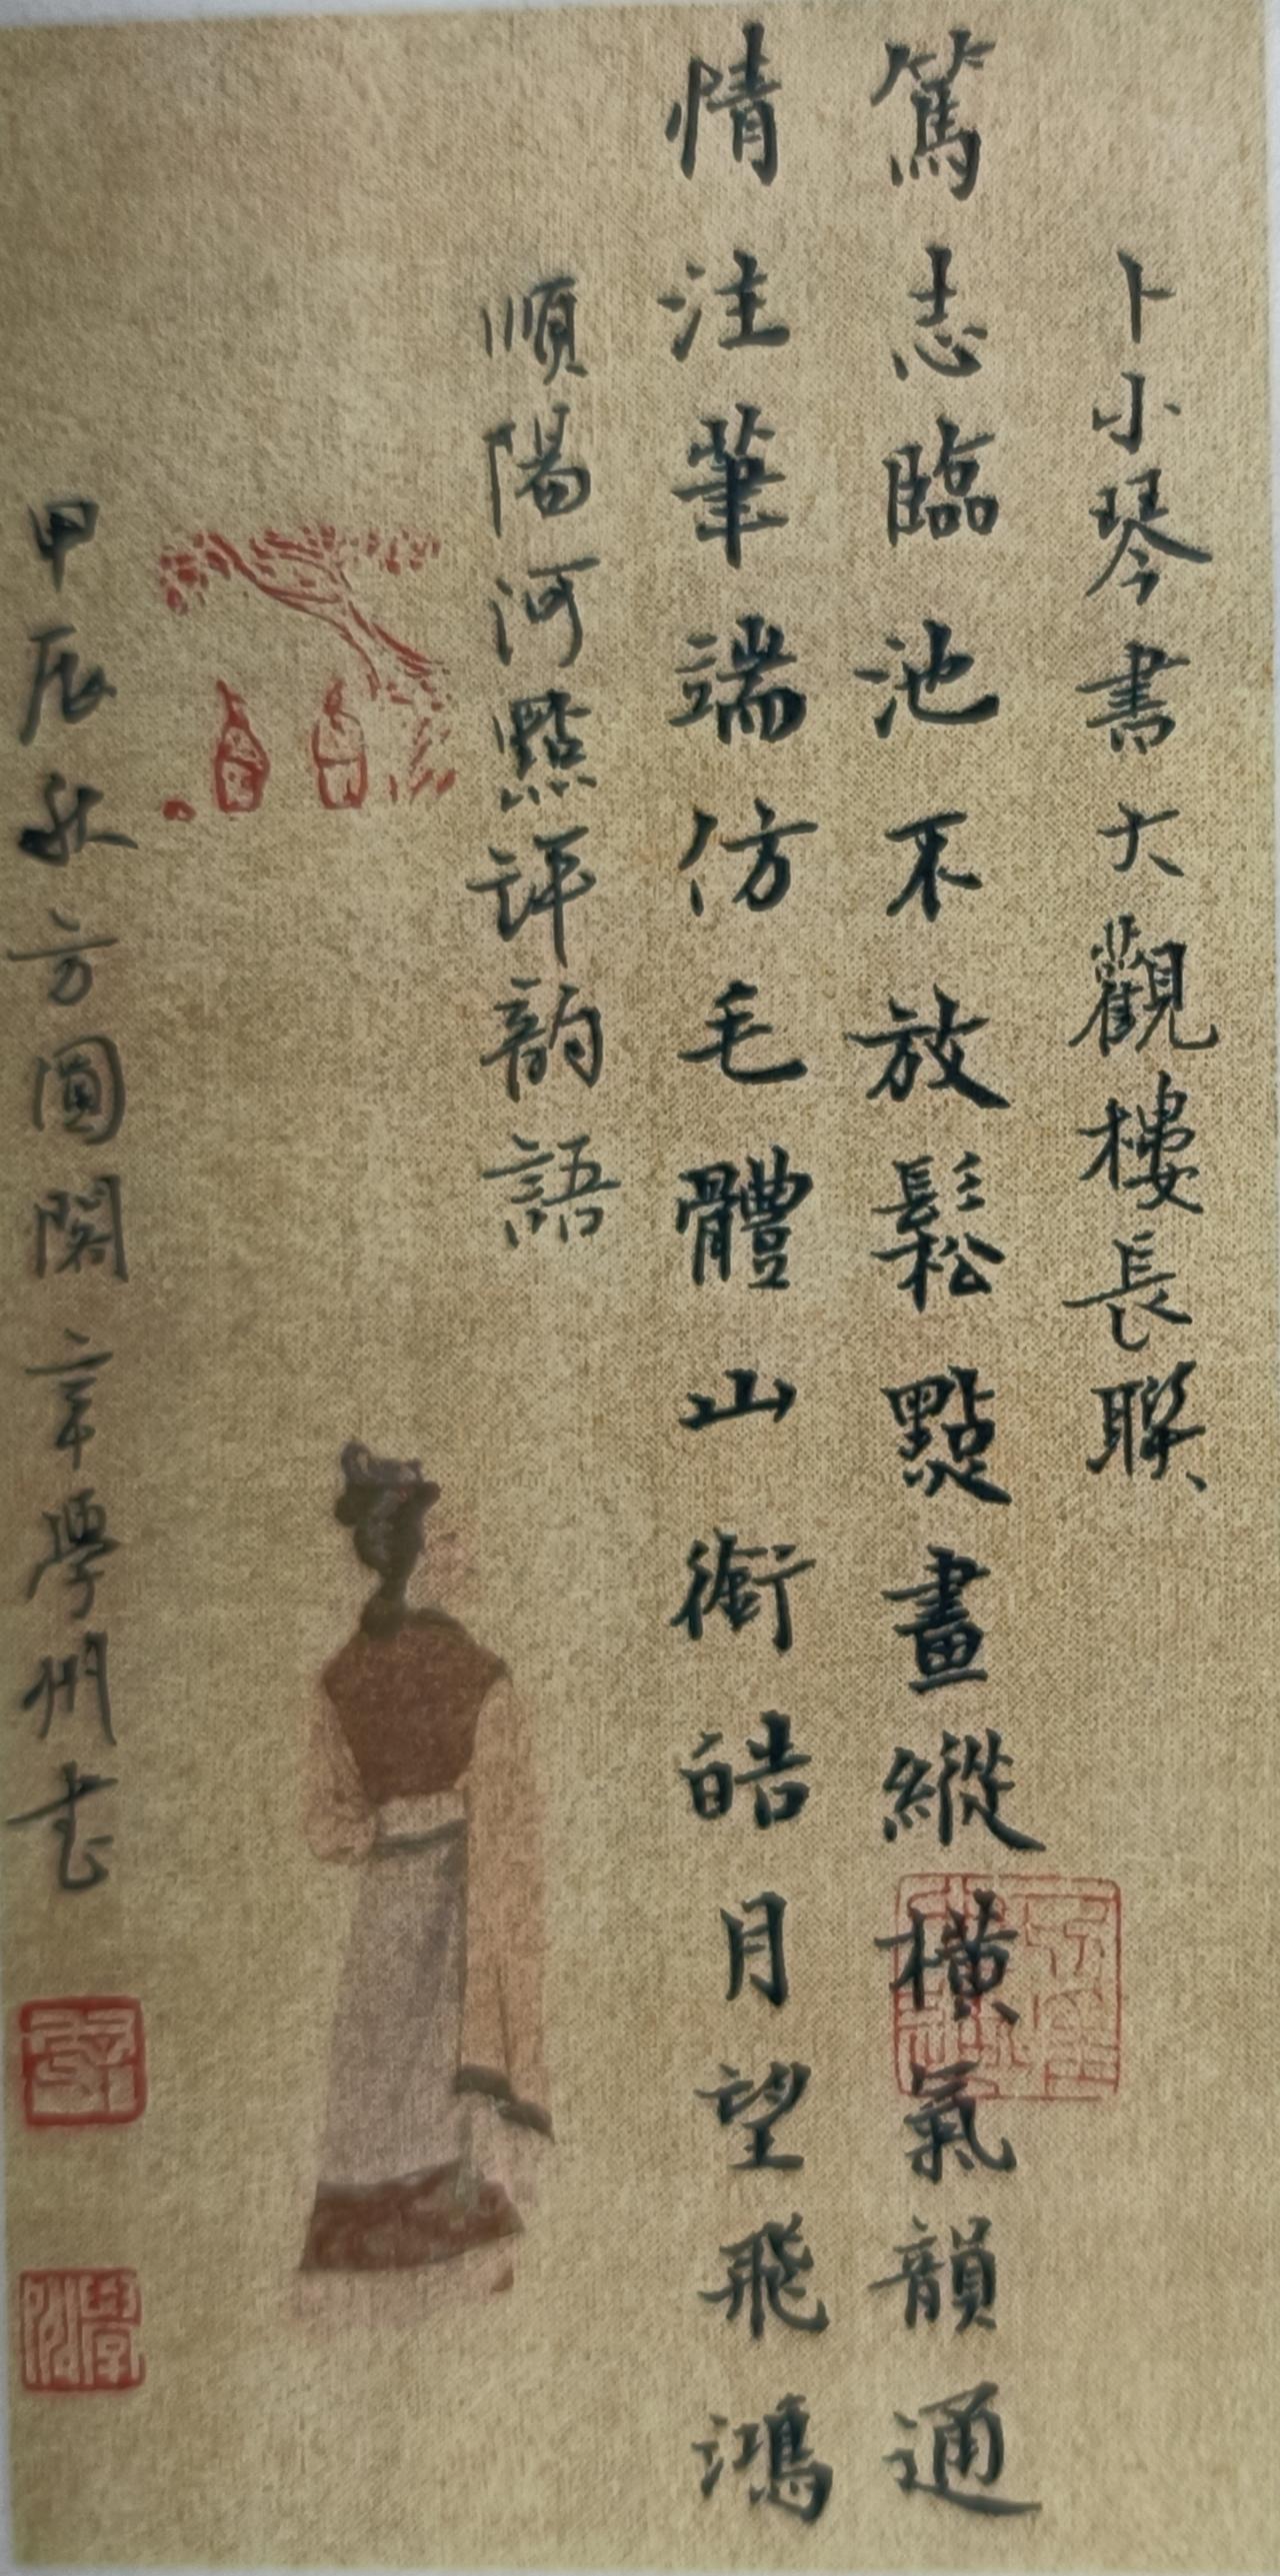 卜小琴書大觀樓長聯
篤志臨池不放鬆點畫縱橫氣韻通
情注筆端仿毛體山銜皓月望飛鴻
順陽河點評韵語
甲辰秋方圓閣章學州书